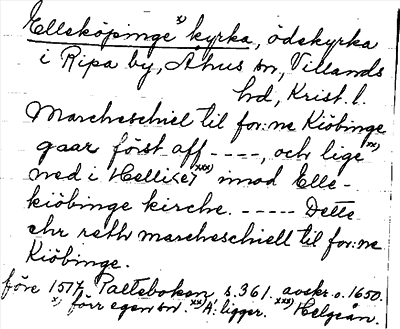 Ellsköpinge x) kyrka, ödekyrka
i Ripa by, Åhus sn, Villands
hd, Krist. l.
Marcheschiel til for:ne Kiöbinge
gaar först aff ----, och lige xx)
ned i Helli<e> xxx) imod Elle-
kiöbinge kirche. ----- Dette
ehr reth marcheschiell til for:ne
Kiöbinge.
före 1517, Paltebokon s. 361. avskr. o. 1650.
x) förr egen sn. xx) Å: ligger. xxx) Helgeån.